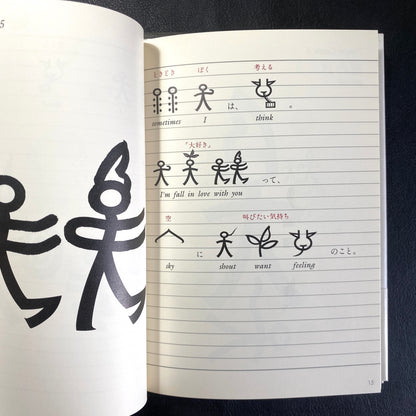 5
ときどき ぼく 考える
は、 。
sometimes I think
「大好き」
I'm fall in love with you
って、
空 叫びたい気持ち
に のこと。
sky shout want feeling
15